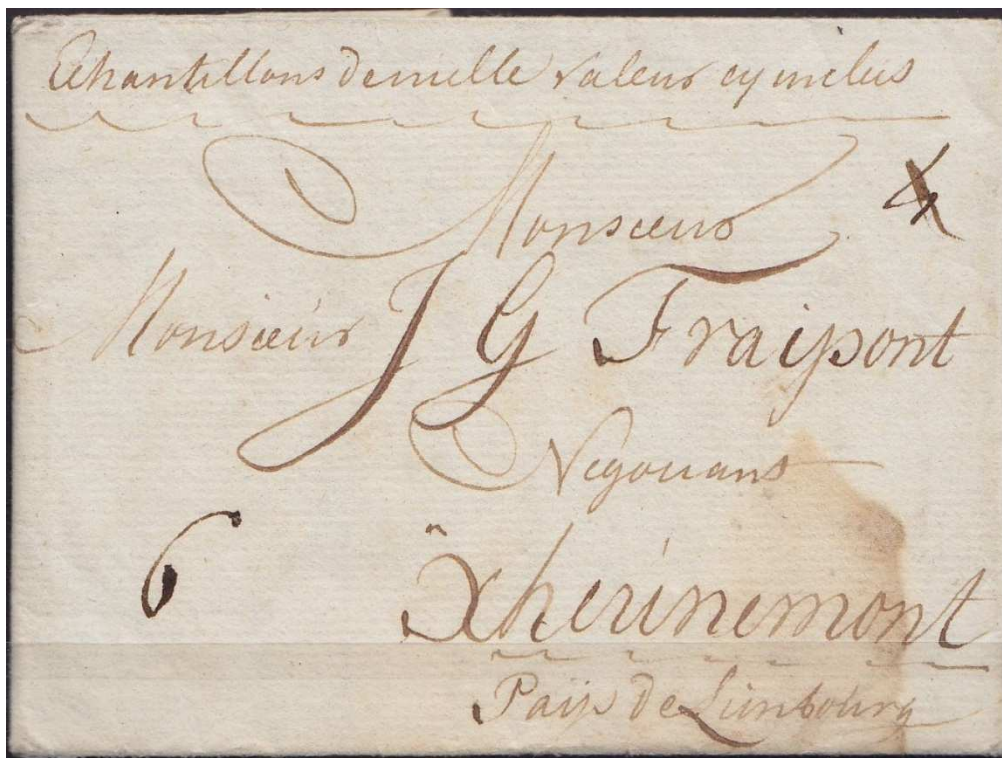 Echantillons de nulle valeur cy inclus
Monsieur
4
Monsieur J G Fraipont
Negotiant
6
a Xherinemont
Païs de Limbourg